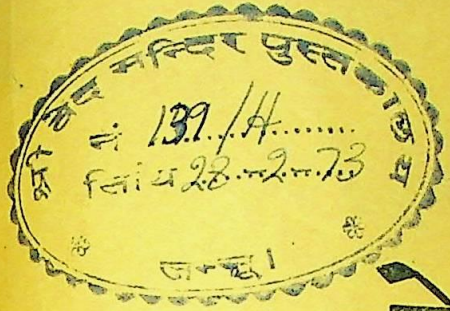 श्री वेद मन्दिर पुस्तकालय
नं 139/H
तिथि 28-2-73
जम्मू।